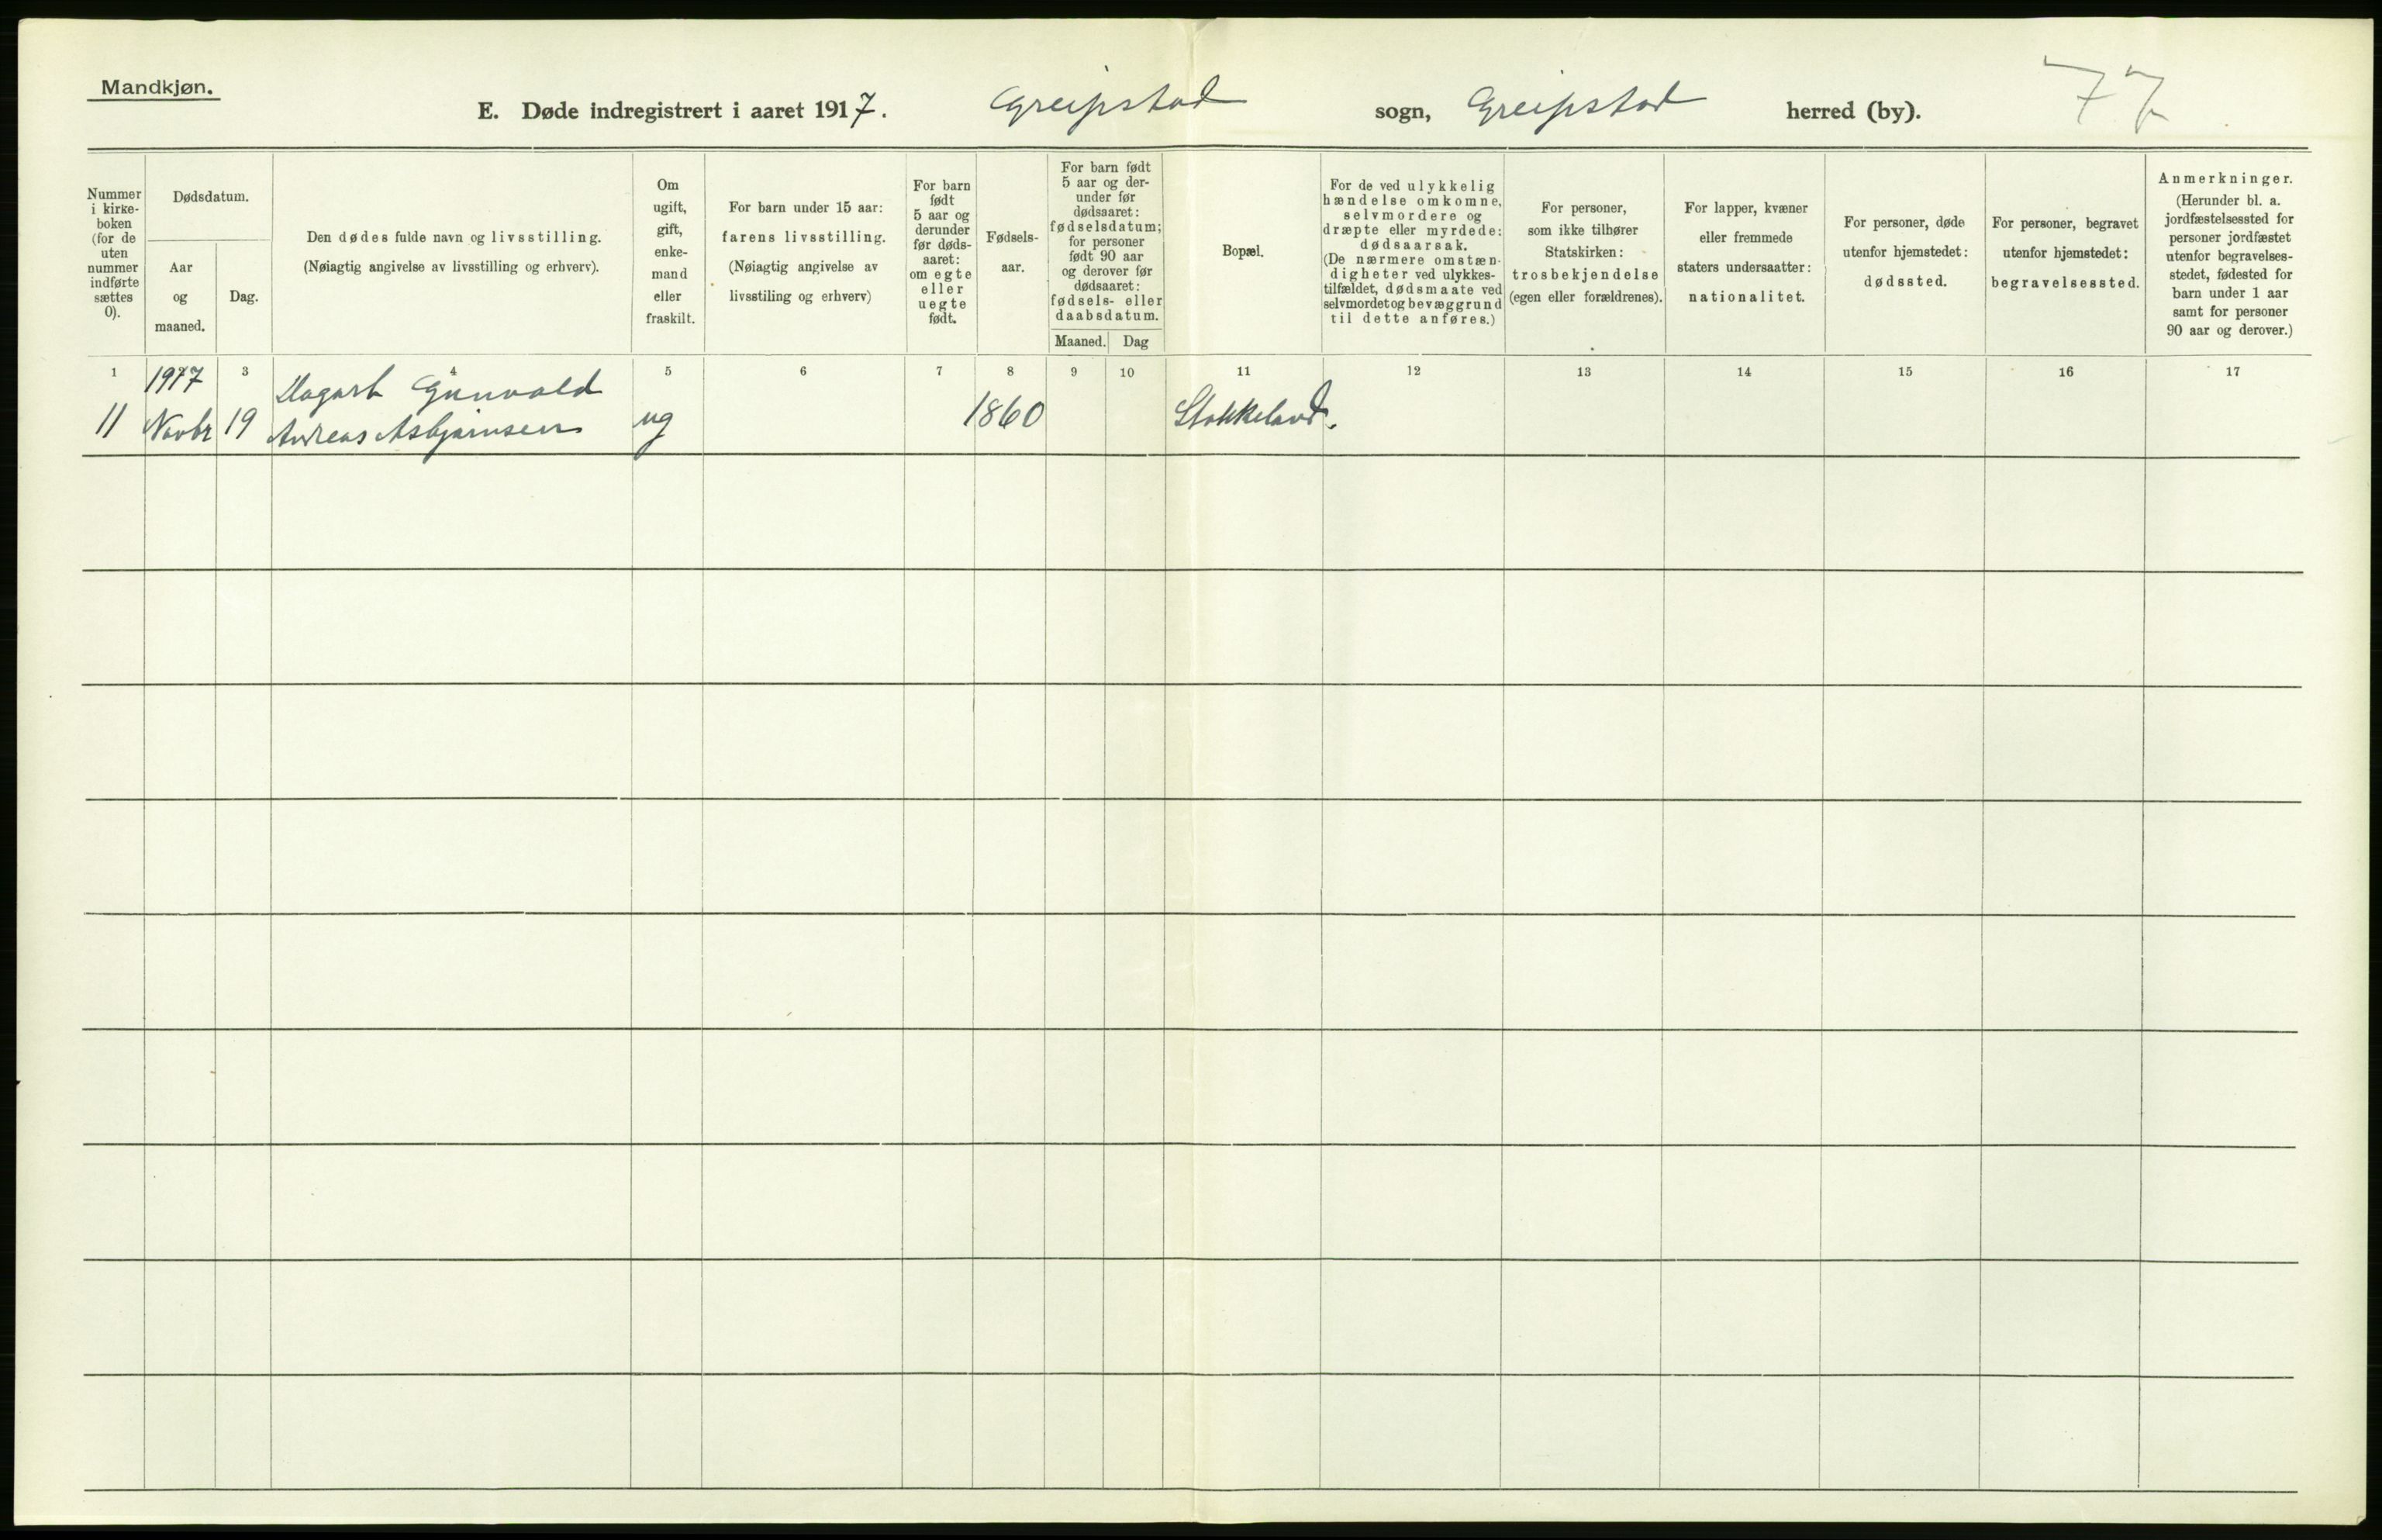 Mandkjøn.
E. Døde indregistrert i aaret 1917. Greipstad sogn, Greipstad herred (by). 77
Nummer
i kirke-
boken
(for de
uten
nummer
indførte
sættes
0).
Dødsdatum.
Aar
og
maaned.
Dag.
Den dødes fulde navn og livsstilling.
(Nøiagtig angivelse av livsstilling og erhverv).
Om
ugift,
gift,
enke-
mand
eller
fraskilt.
For barn under 15 aar:
farens livsstilling.
(Nøiagtig angivelse av
livsstiling og erhverv)
For barn
født
5 aar og
derunder
før døds-
aaret:
om egte
eller
uegte
født.
Fødsels-
aar.
For barn født
5 aar og der-
under før
dødsaaret:
fødselsdatum;
for personer
født 90 aar
og derover før
dødsaaret:
fødsels- eller
daabsdatum.
Maaned. Dag
Bopæl.
For de ved ulykkelig
hændelse omkomne,
selvmordere og
dræpte eller myrdede:
dødsaarsak.
(De nærmere omstæn-
digheter ved ulykkes-
tilfældet, dødsmaate ved
selvmordet og bevæggrund
til dette anføres.)
For personer,
som ikke tilhører
Statskirken:
trosbekjendelse
(egen eller forældrenes).
For lapper, kvæner
eller fremmede
staters undersaatter:
nationalitet.
For personer, døde
utenfor hjemstedet:
dødssted.
For personer, begravet
utenfor hjemstedet:
begravelsessted.
Anmerkninger.
(Herunder bl. a.
jordfæstelsessted for
personer jordfæstet
utenfor begravelses-
stedet, fødested for
barn under 1 aar
samt for personer
90 aar og derover.)
1 3 4 5 6 7 8 9 10 11 12 13 14 15 16 17
1917 Gunvald
11 Novbr 19 Andreas Asbjørnsen ug 1860 Stokkeland.